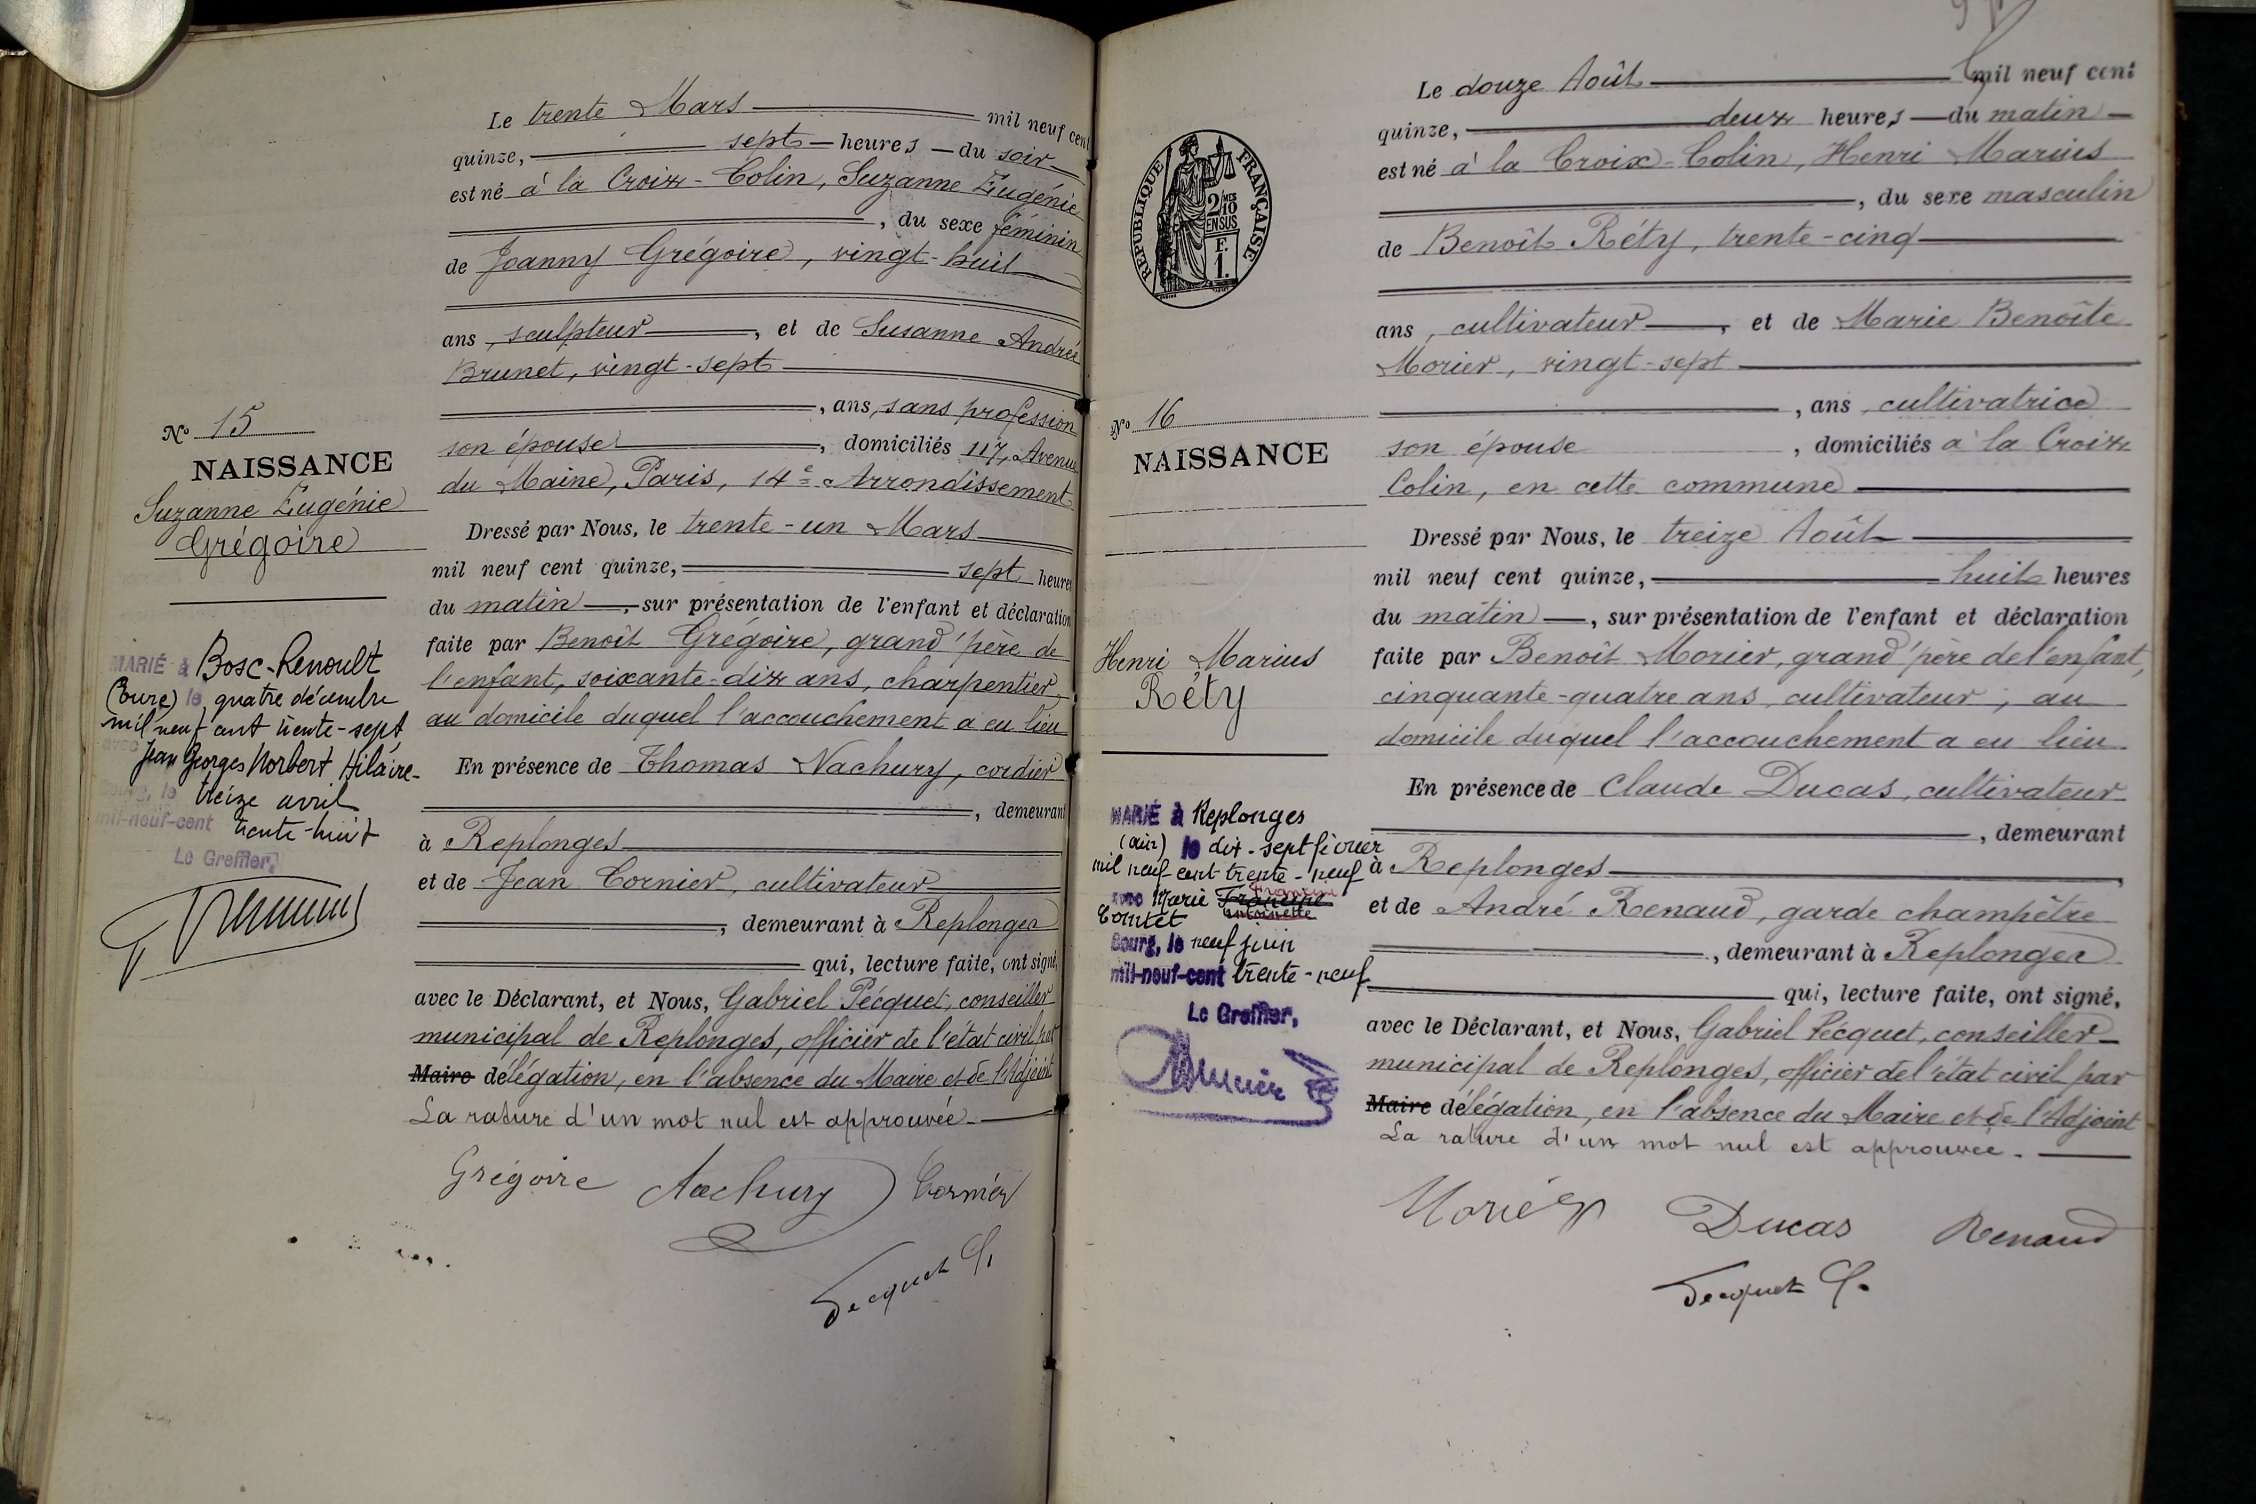 Le trente Mars mil neuf cent
quinze, sept heures du soir
est né à la Croix-Colin, Suzanne Eugénie
, du sexe féminin
de Joanny Grégoire, vingt-huit
ans, sculpteur, et de Susanne Andrée
Brunet, vingt-sept
, ans, sans profession
son épouse, domiciliés 117, Avenue
du Maine, Paris, 14e Arrondissement
Dressé par Nous, le trente-un Mars
mil neuf cent quinze, sept heures
du matin, sur présentation de l'enfant et déclaration
faite par Benoît Grégoire, grand'père de
l'enfant, soixante-dix ans, charpentier,
au domicile duquel l'accouchement a eu lieu
En présence de Thomas Nachury, cordier
, demeurant
à Replonges
et de Jean Cornier, cultivateur
, demeurant à Replonges
qui, lecture faite, ont signé,
avec le Déclarant, et Nous, Gabriel Pecquet, conseiller
municipal de Replonges, officier de l'état civil par
Maire délégation, en l'absence du Maire et de l'Adjoint
La rature d'un mot nul est approuvée.
Grégoire Nachury Cornier
Pecquet G.
No 15
NAISSANCE
Suzanne Eugénie
Grégoire
MARIÉ à Bosc-Renoult
(Eure) le quatre décembre
mil neuf cent trente-sept
avec
Jean Georges Norbert Hilaire
Bourg, le treize avril
mil-neuf-cent trente-huit
Le Greffier,
Le douze Août mil neuf cent
quinze, deux heures du matin
est né à la Croix-Colin, Henri Marius
, du sexe masculin
de Benoît Réty, trente-cinq
ans, cultivateur, et de Marie Benoîte
Morier, vingt-sept
, ans, cultivatrice
son épouse, domiciliés à la Croix
Colin, en cette commune
Dressé par Nous, le treize Août
mil neuf cent quinze, huit heures
du matin, sur présentation de l'enfant et déclaration
faite par Benoît Morier, grand'père de l'enfant,
cinquante-quatre ans, cultivateur, au
domicile duquel l'accouchement a eu lieu.
En présence de Claude Ducas, cultivateur
, demeurant
à Replonges
et de André Renaud, garde champêtre
, demeurant à Replonges
qui, lecture faite, ont signé,
avec le Déclarant, et Nous, Gabriel Pecquet, conseiller
municipal de Replonges, officier de l'état civil par
Maire délégation, en l'absence du Maire et de l'Adjoint
La rature d'un mot nul est approuvée.
Morier Ducas Renaud
Pecquet G.
RÉPUBLIQUE FRANÇAISE
2/10 MES
EN SUS
F.
1.
No 16
NAISSANCE
Henri Marius
Réty
MARIÉ à Replonges
(Ain) le dix-sept février
mil neuf cent trente-neuf
avec Marie Francine
Antoinette
Comtet
Bourg, le neuf juin
mil-neuf-cent trente-neuf
Le Greffier,